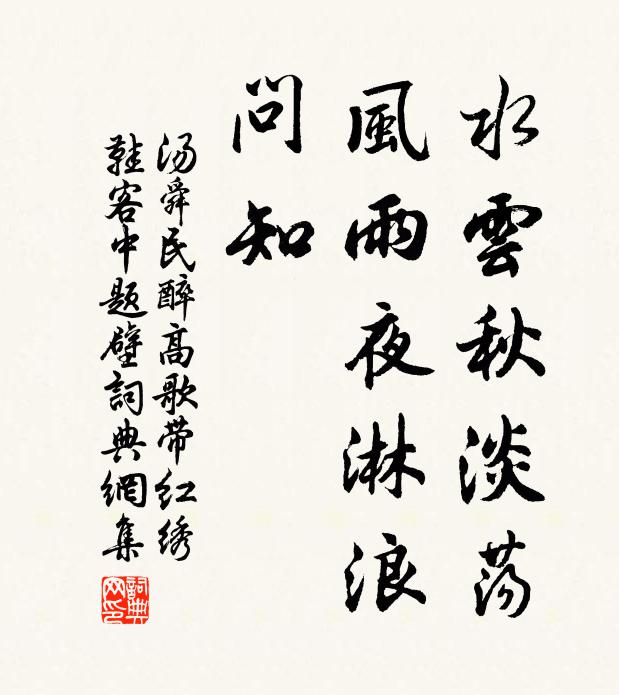 水雲秋淡荡
風雨夜淋浪
问知
汤舜民醉高歌带红绣
鞋客中题壁詞典網集
詞典
网印